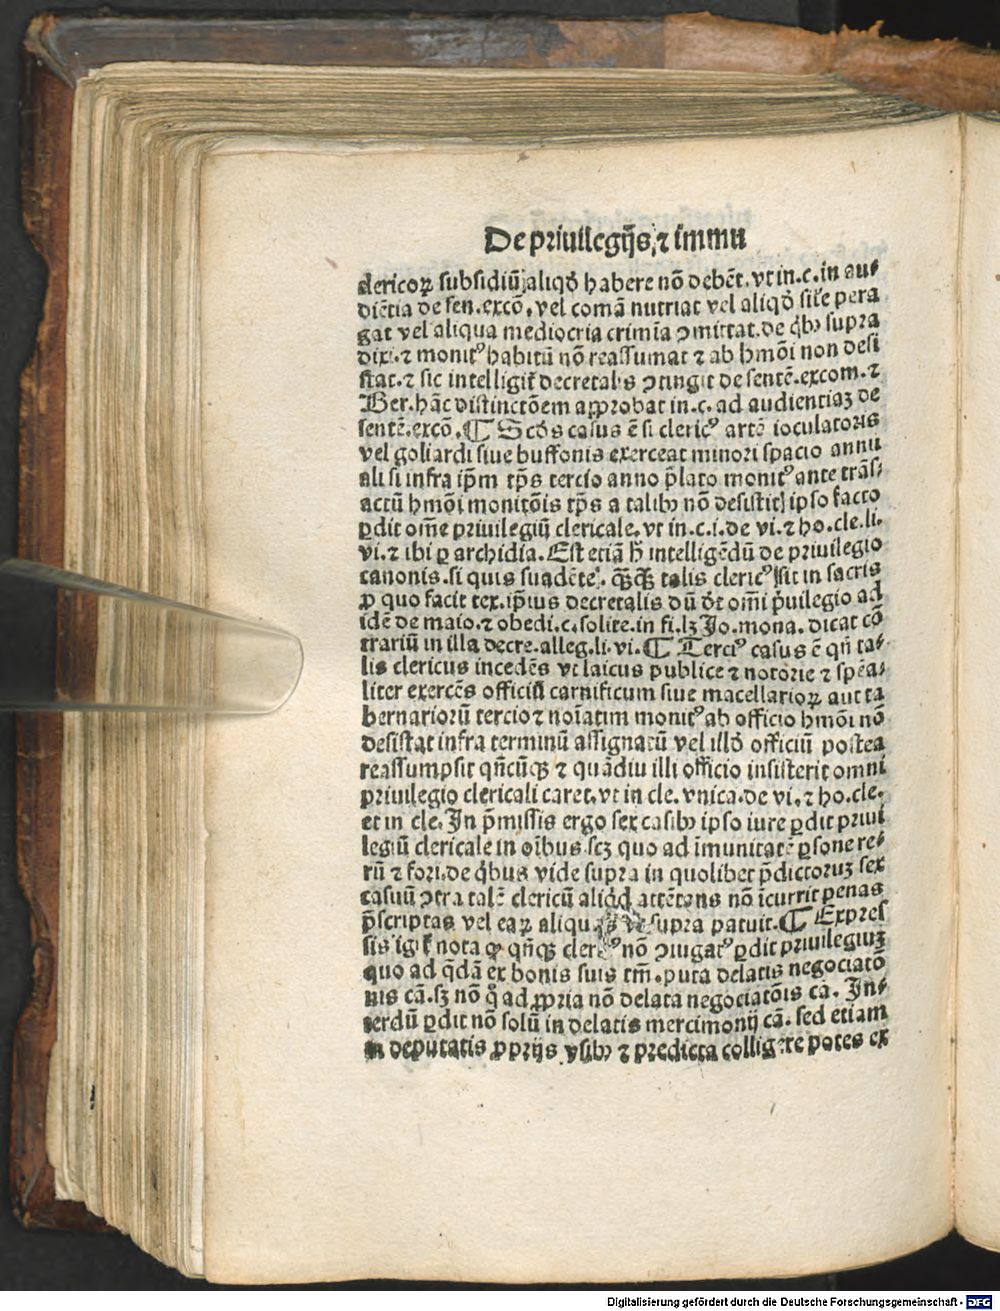 De priuilegijs ⁊ immu
clericoꝝ subsidiū aliqd̓ habere nō debēt. vt in. c. in au⸗
diētia de sen. excō. vel comā nutriat vel aliqd̓ sil̓e pera
gat vel aliqua mediocria crimīa ɔmittat. de qͥbꝰ supra
dixi. ⁊ monitꝰ habitū nō reassumat ⁊ ab hmōi non desi
stat. ⁊ sic intelligit̉ decretalis ɔtingit de sentē. excom. ⁊
Ber. hāc distinctōem aꝓprobat in. c. ad audientiaꝫ de
sentē. excō. ¶ Scd̓s casus ē si clericꝰ artē ioculatoris
vel goliardi siue buffonis exerceat minori spacio annu
ali si infra ip̄m tp̄s tercio anno p̄lato monitꝰ ante trās⸗
actū hmōi monitōis tp̄s a talibꝰ nō desistit ipso facto
ꝑdit om̄e priuilegiū clericale. vt in. c. i. de vi. ⁊ ho. cle. li.
vi. ⁊ ibi ꝑ archidia. Est etiā h̄ intelligēdū de priuilegio
canonis. si quis suadēte. qͣꝫqͣꝫ talis clericꝰ sit in sacris
ꝓ quo facit tex. ip̄ius decretalis dū d̓t om̄i p̓uilegio ad
idē de maio. ⁊ obedi. c. solite. in fi. lꝫ Jo. mona. dicat cō
trariū in illa decre. alleg. li. vi. ¶ Terciꝰ casus ē qn̄ ta⸗
lis clericus incedēs vt laicus publice ⁊ notorie ⁊ spēa⸗
liter exercēs officiū carnificum siue macellarioꝝ aut ta
bernariorū tercio ⁊ noīatim monitꝰ ab officio hmōi nō
desistat infra terminū assignatū vel illd̓ officiū postea
reassumpsit qn̄cūqꝫ ⁊ quādiu illi officio insisterit omni
priuilegio clericali caret. vt in cle. vnica. de vi. ⁊ ho. cle.
et in cle. In p̄missis ergo sex casibꝰ ipso iure ꝑdit priui
legiū clericale in oībus. scꝫ quo ad īmunitatē ꝑsone re⸗
rū ⁊ fori. de qͥbus vide supra in quolibet p̄dictoruꝫ sex
casuū ɔtra talē clericū aliqͥd attētans nō īcurrit penas
p̄scriptas vel eaꝝ aliqu supra patuit. ¶ Expres
sis igit̉ nota ꝙ qn̄qꝫ clericꝰ nō ɔiugatꝰ ꝑdit priuilegiuꝫ
quo ad qͣdā ex bonis suis tm̄. puta delatis negociatō
nis cā. sꝫ nō qͦ ad ꝓpria nō delata negociatōis cā. In⸗
terdū ꝑdit nō solū in delatis mercimonij cā. sed etiam
in deputatis ꝓprijs vsibꝰ ⁊ predicta colligere potes ex
Digitalisierung gefördert durch die Deutsche Forschungsgemeinschaft - DFG